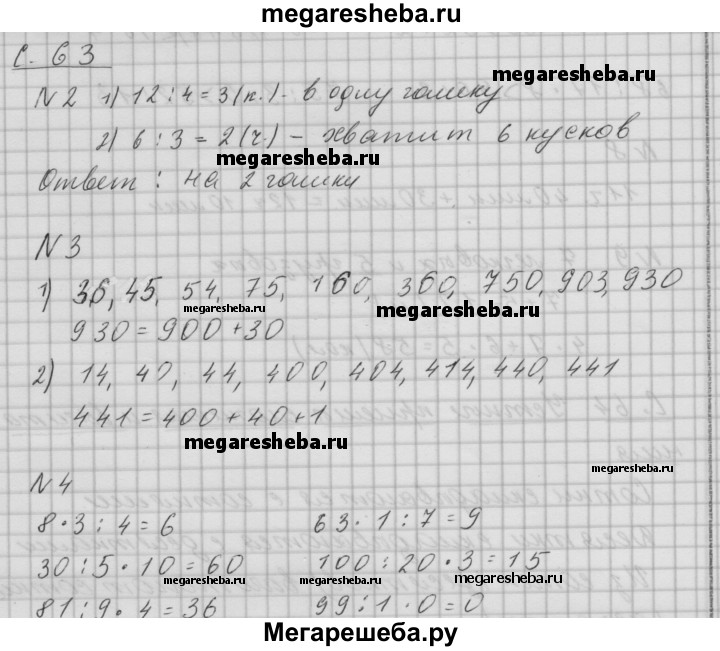 megaresheba.ru
С. 63
N2 1) 12 : 4 = 3 (к.) - в одну чашку
megaresheba.ru
2) 6 : 3 = 2 (ч.) - хватит 6 кусков
megaresheba.ru
Ответ: на 2 чашки
N3
1) 36, 45, 54, 75, 160, 360, 750, 903, 930
megaresheba.ru megaresheba.ru
930 = 900 + 30
2) 14, 40, 44, 400, 404, 414, 440, 441
441 = 400 + 40 + 1
megaresheba.ru
megaresheba.ru
N4
8 · 3 : 4 = 6 63 · 1 : 7 = 9
30 : 5 · 10 = 60 100 : 20 · 3 = 15
megaresheba.ru megaresheba.ru megaresheba.ru
81 : 9 · 4 = 36 99 : 1 · 0 = 0
Мегарешеба.ру